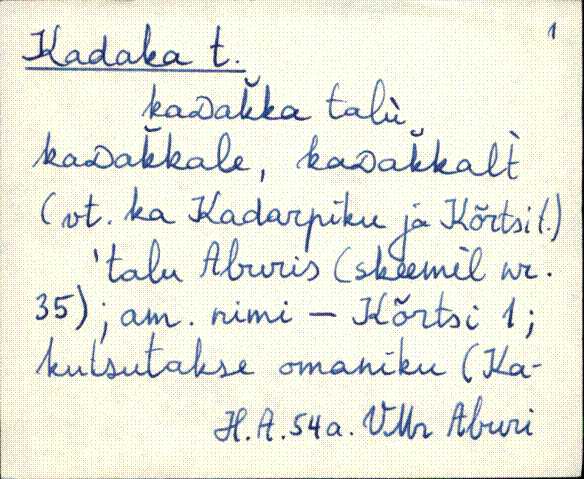 1
Kadaka t.
kaᴅak̆ka talù
kaᴅak̆kale, kaᴅak̆kalt̀
(vt. ka Kadarpiku ja Kõrtsi t.)
'talu Aburis (skeemil nr.
35); am. nimi — Kõrtsi 1;
kutsutakse omaniku (Ka-
H.A. 54a. VMr Aburi